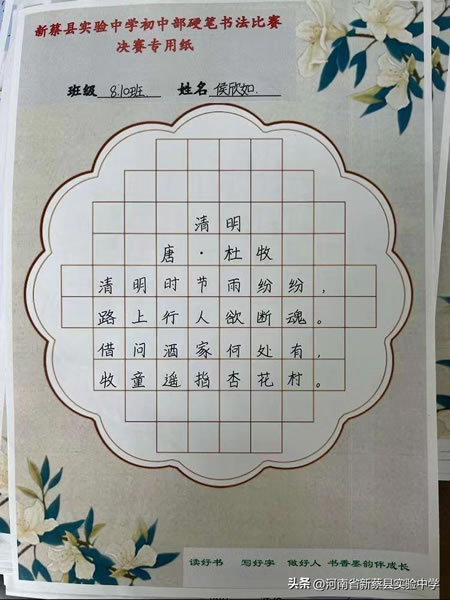 新蔡县实验中学初中部硬笔书法比赛
决赛专用纸
班级 8.10班 姓名 侯欣如
清明
唐·杜牧
清明时节雨纷纷，
路上行人欲断魂。
借问酒家何处有，
牧童遥指杏花村。
读好书 写好字 做好人 书香墨韵伴成长
头条 @河南省新蔡县实验中学